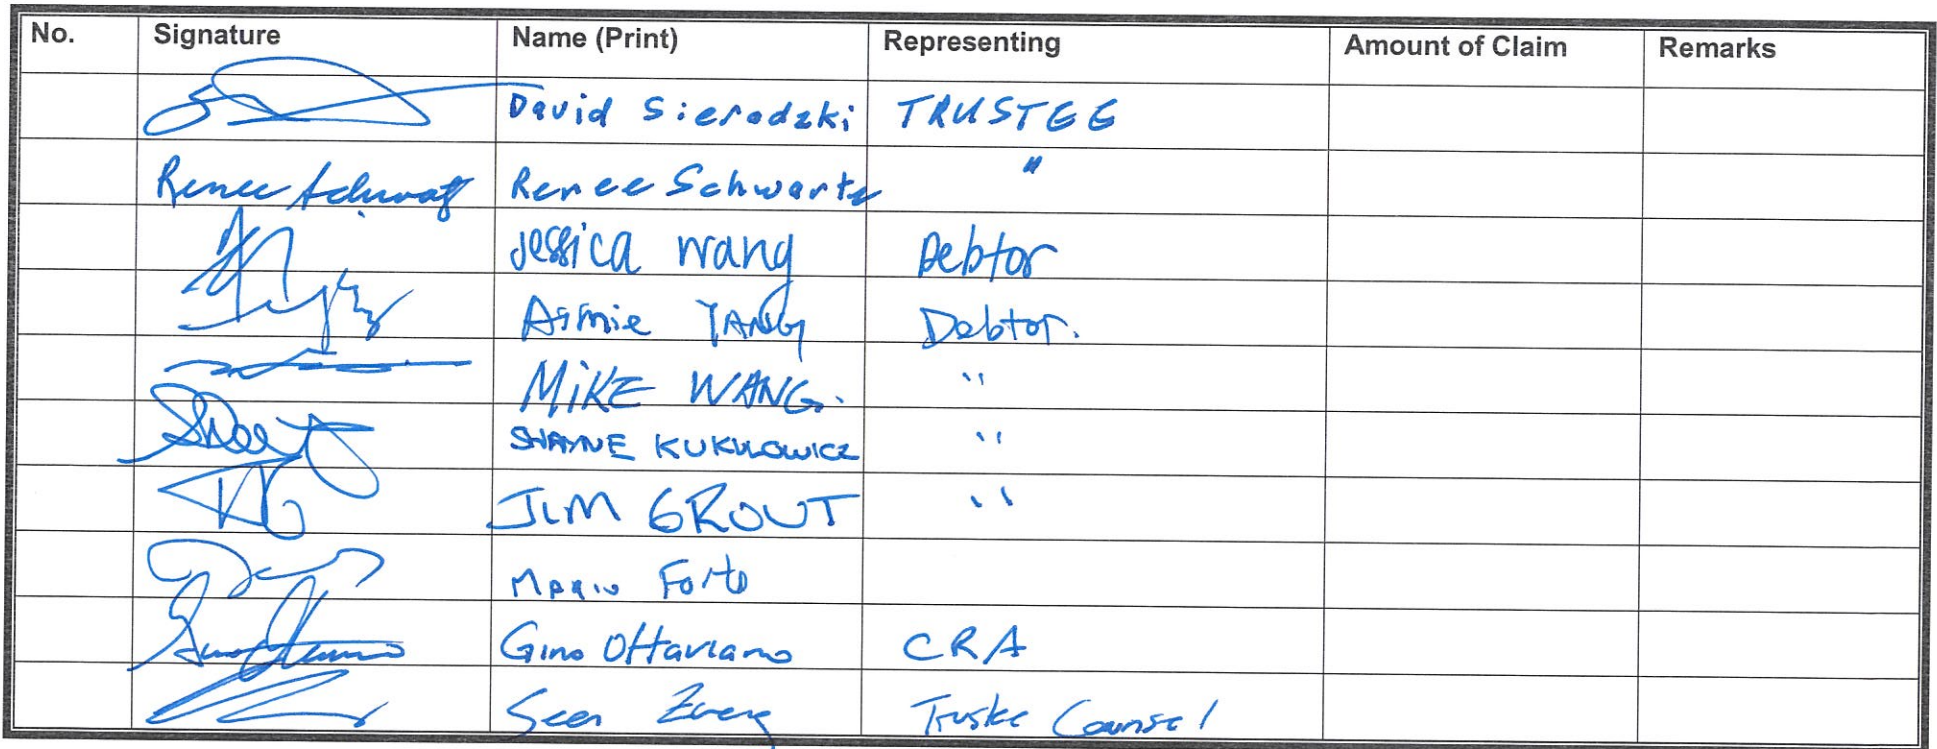 No. Signature Name (Print) Representing Amount of Claim Remarks
David Sieradzki TRUSTEE
Renee Schwartz Renee Schwartz "
Jessica Wang Debtor
Aimie YANG Debtor.
MIKE WANG. "
SHAYNE KUKULOWICZ "
JIM GROUT "
Mario Forte
Gino Ottaviano CRA
Sean Zweig Trustee Counsel